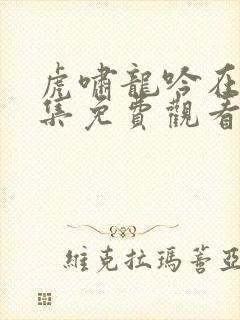 虎嘯龍吟在
集免費觀看
維克拉瑪蓋亞